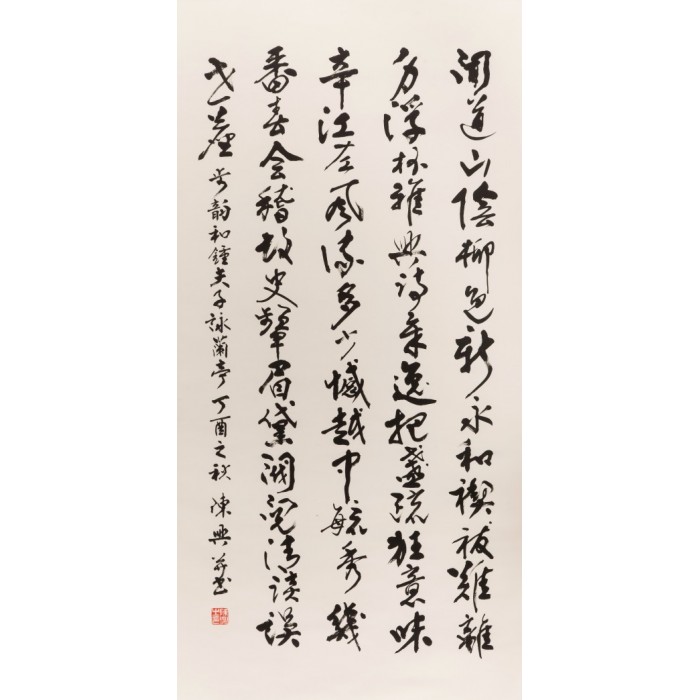 聞道山陰柳色新永和禊祓難離
浮杯雅興詩章逸把盞疏狂意味
辛江左風流多少憾越中毓秀幾
番春會稽故史顰眉黛清談誤
塵步韻和鍾夫子詠蘭亭丁酉之秋陳興并書